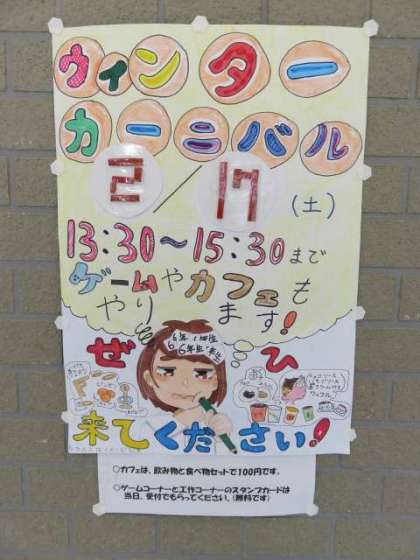 ウィンター
カーニバル
2/17(土)
13:30～15:30まで
ゲームやカフェも
やります!
ぜひ
来てください!
○カフェは、飲み物と食べ物セットで100円です。
○ゲームコーナーと工作コーナーのスタンプカードは
当日、受付でもらってください。(無料です)